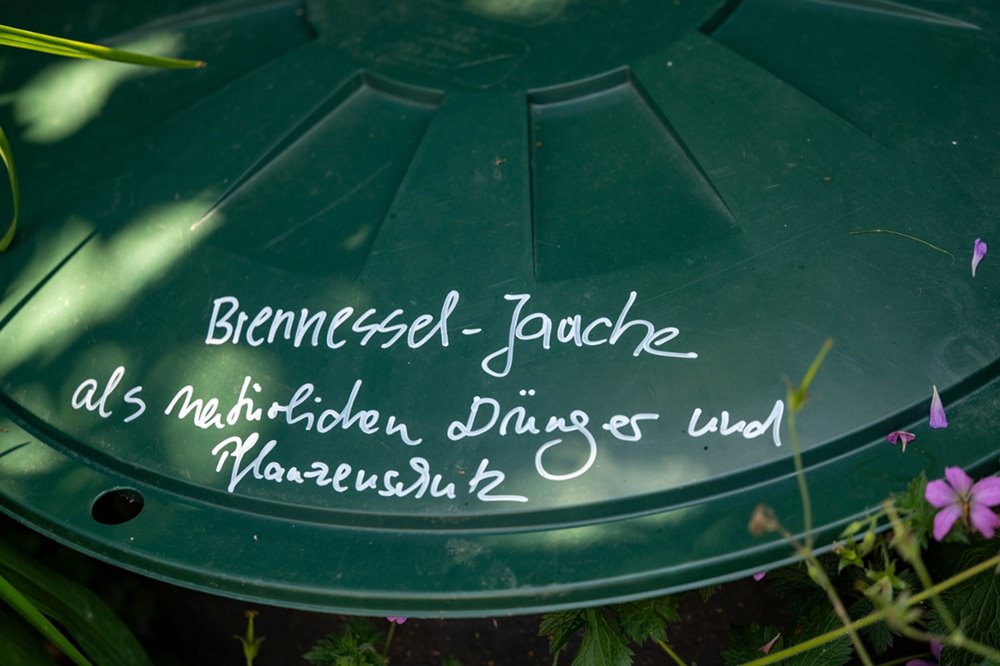 Brennessel-Jauche
als natürlichen Dünger und
Pflanzenschutz